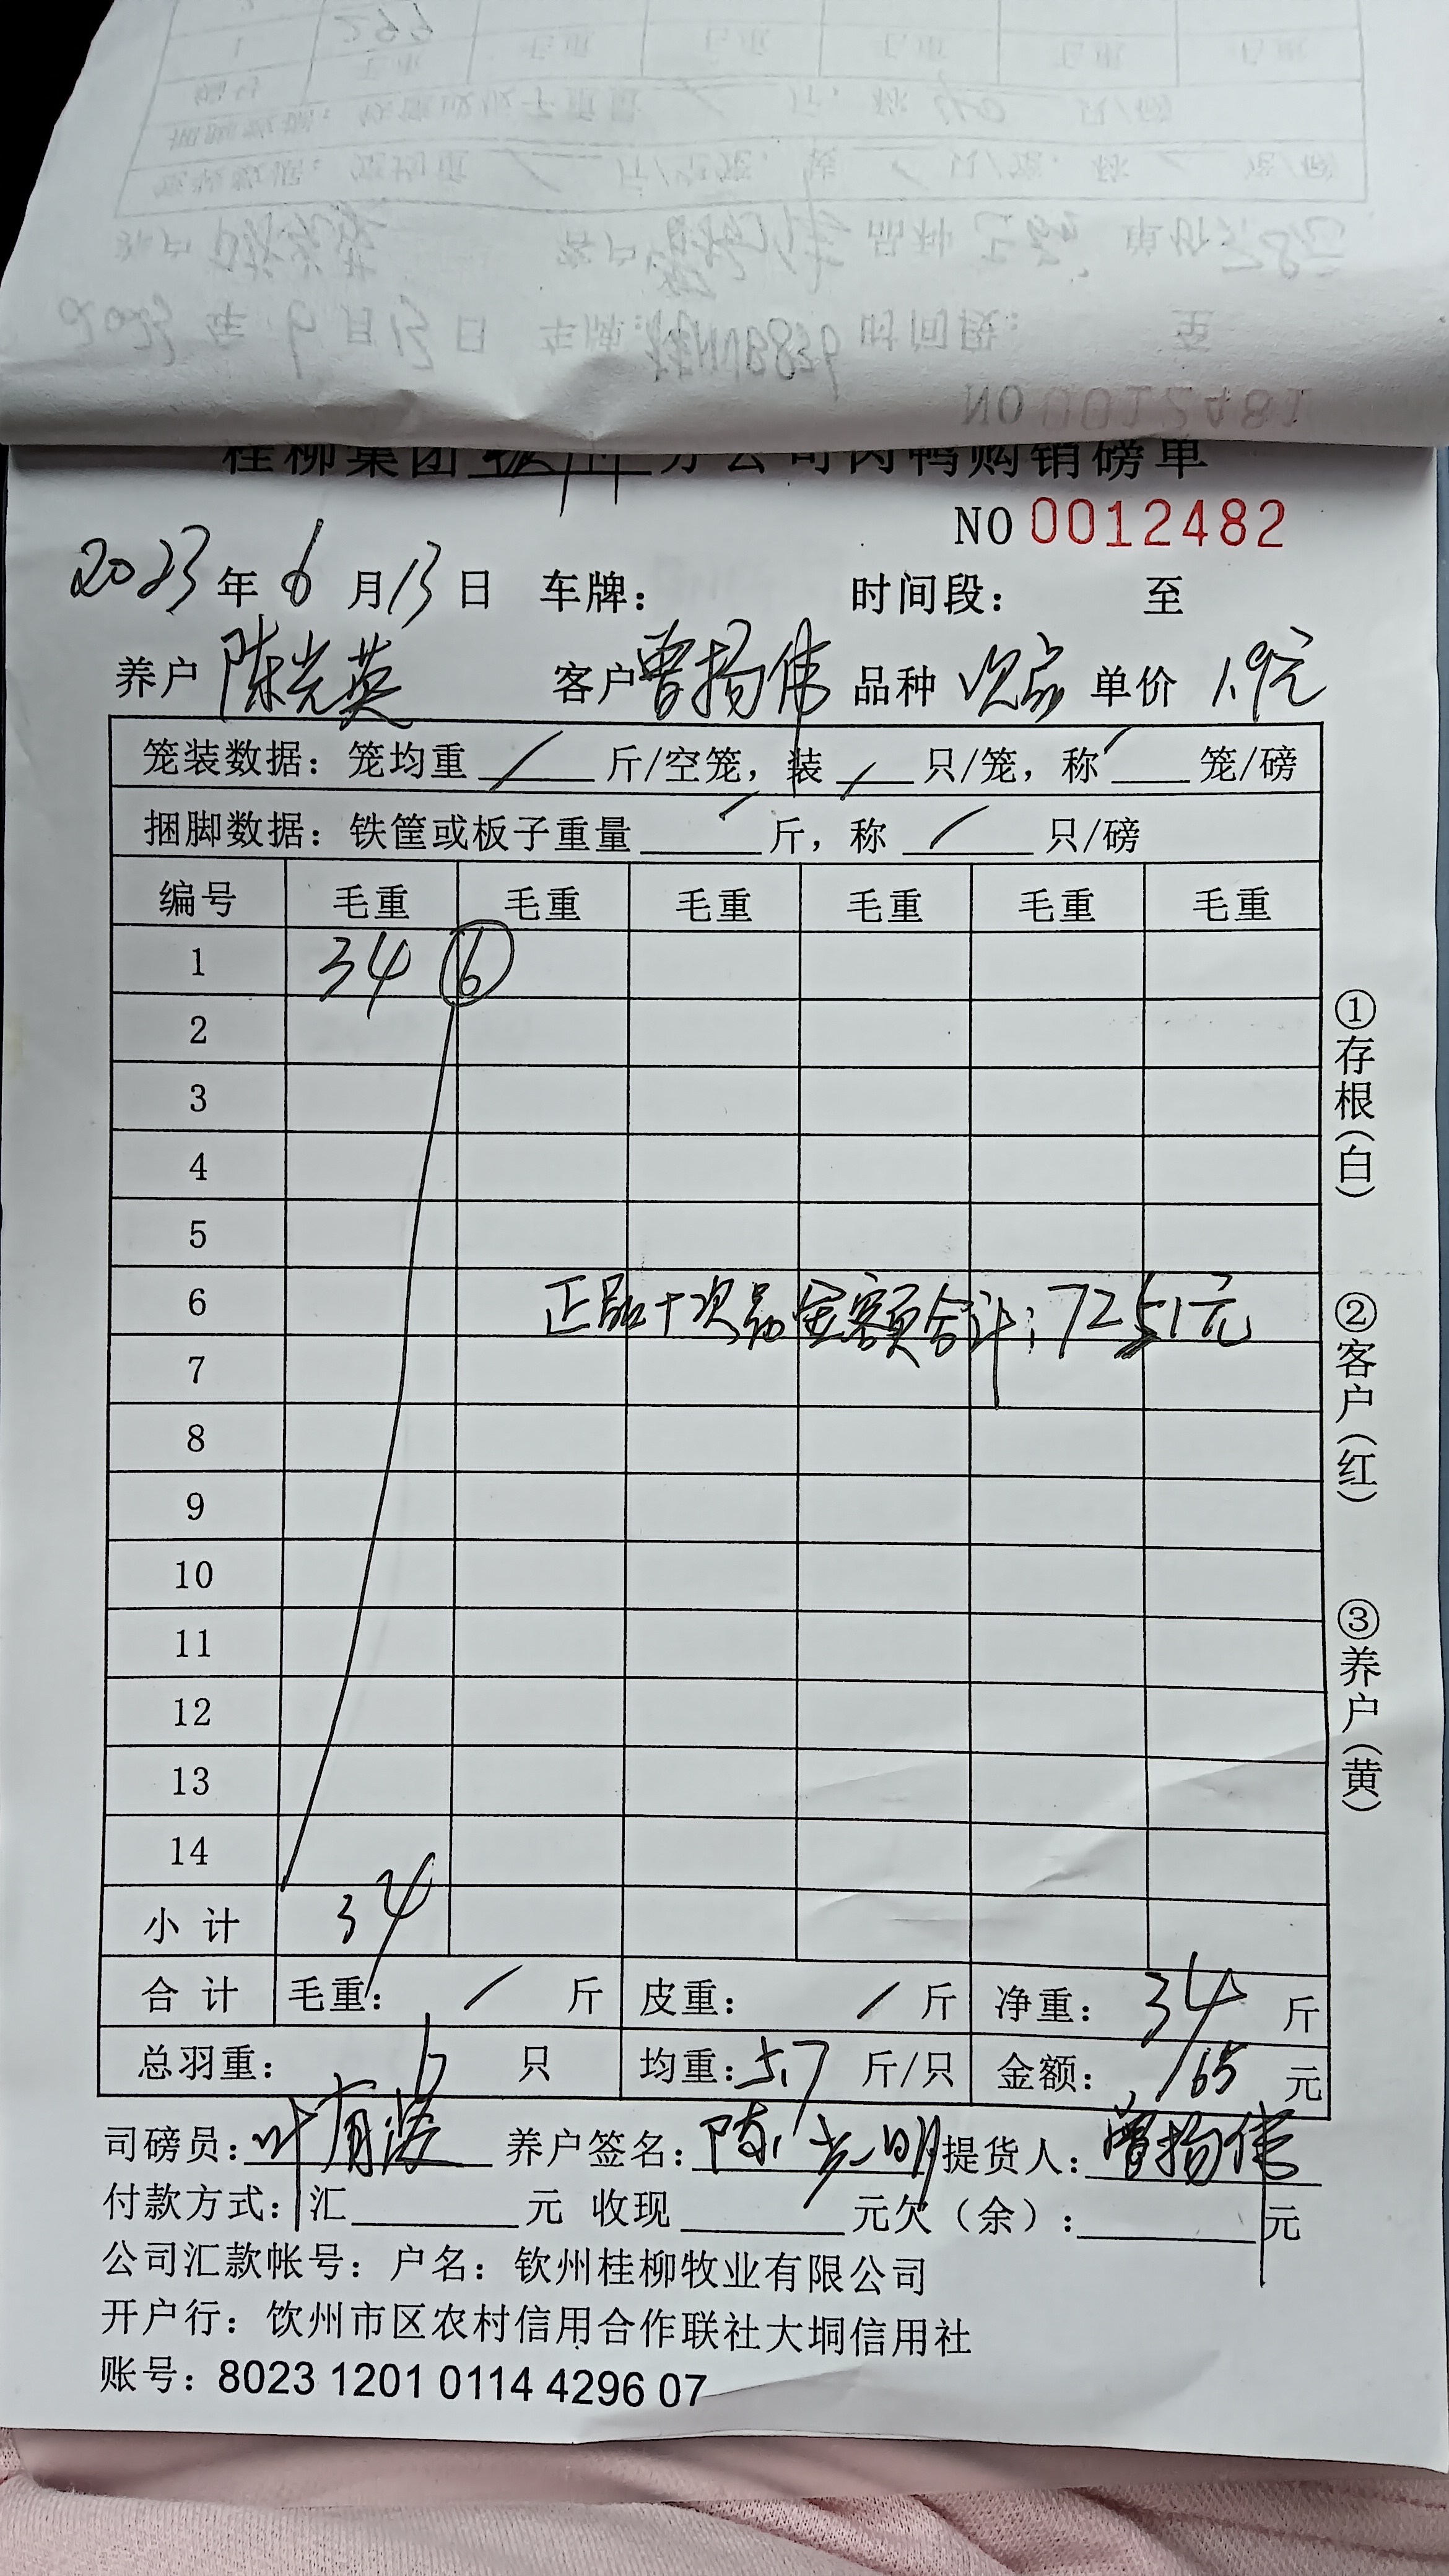 桂柳集团钦州分公司肉鸭购销磅单
NO 0012482
2023年6月13日 车牌： 时间段： 至
养户 陈光英 客户 曾扬伟 品种 次品 单价 1.9元
笼装数据：笼均重 / 斤/空笼，装 / 只/笼，称 / 笼/磅
捆脚数据：铁筐或板子重量 / 斤，称 / 只/磅
编号 毛重 毛重 毛重 毛重 毛重 毛重
1 34 ⑥
2
3
4
5
6 正品+次品金额合计：7251元
7
8
9
10
11
12
13
14
小计 34
合计 毛重： / 斤 皮重： / 斤 净重： 34 斤
总羽重： 6 只 均重：5.7 斤/只 金额： 65 元
司磅员： 养户签名：陈光明 提货人：曾扬伟
付款方式：汇 元 收现 元欠（余）： 元
公司汇款帐号：户名：钦州桂柳牧业有限公司
开户行：饮州市区农村信用合作联社大垌信用社
账号：8023 1201 0114 4296 07
①存根（白）
②客户（红）
③养户（黄）